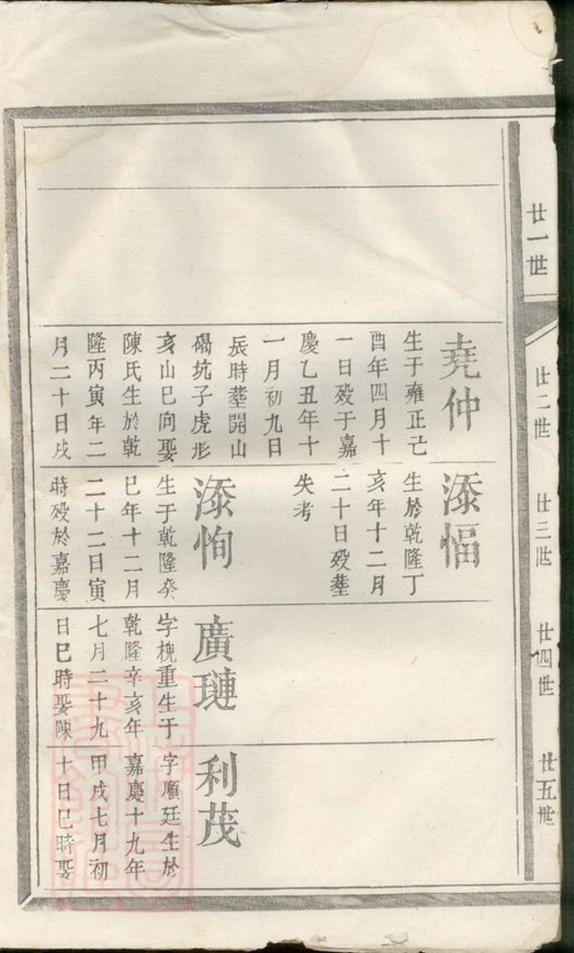 廿一世
廿二世
廿三世
廿四世
廿五世
堯仲
生于雍正己
酉年四月十
一日殁于嘉
慶乙丑年十
一月初九日
辰時塟開山
碣坑子虎形
亥山巳向娶
陳氏生於乾
隆丙寅年二
月二十日戌
添福
生於乾隆丁
亥年十二月
二十日殁塟
失考
添恂
生于乾隆癸
巳年十二月
二十二日寅
時殁於嘉慶
廣璉
字槐重生于
乾隆辛亥年
七月二十九
日巳時娶陳
利茂
字順廷生於
嘉慶十九年
甲戌七月初
十日巳時娶